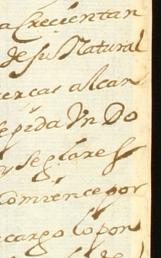 a Crecientan
de su Natural
uercas alcan
epida Un Do
y seglares
Comience por
cargo lo pon